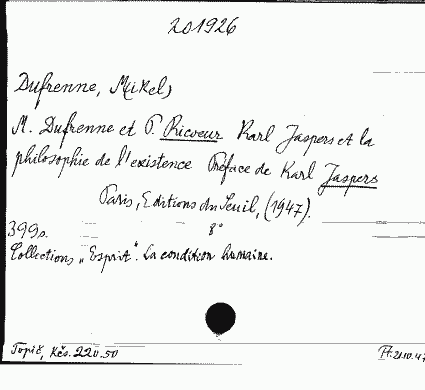 201926
Dufrenne, Mikel,
M. Dufrenne et P. Ricoeur Karl Jaspers et la
philosophie de l'existence Préface de Karl Jaspers
Paris, Editions du Seuil, (1947).
399p. 8°
Collections „Esprit". La condition humaine.
Topič, Kčs. 220.50